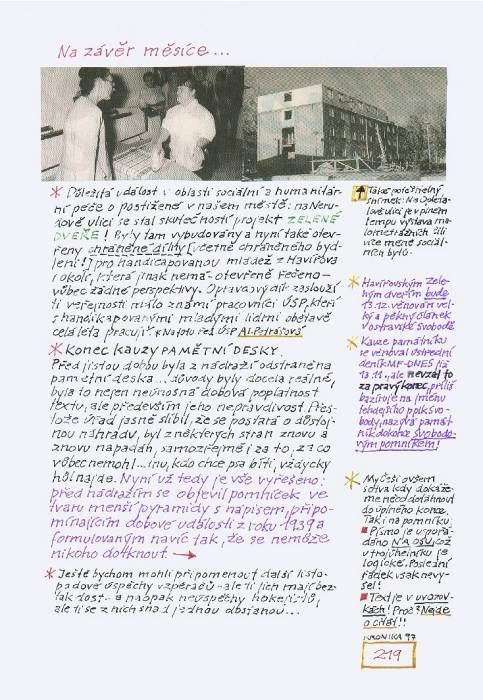 Na závěr měsíce...
* Důležitá událost v oblasti sociální a humanitár-
ní péče o postižené v našem městě: na Neru-
dově ulici se stal skutečností projekt ZELENÉ
DVEŘE! Byly tam vybudovány a nyní také otev-
řeny chráněné dílny (včetně chráněného byd-
lení!) pro handicapovanou mládež z Havířova
i okolí, která jinak nemá - otevřeně řečeno -
vůbec žádné perspektivy. Opravdový dík zaslouží
ti veřejnosti málo známí pracovníci ÚSP, kteří
s handikapovanými mladými lidmi obětavě
celá léta pracují. Na foto řed. ÚSP Al. Petrášová
* Konec kauzy PAMĚTNÍ DESKY.
Před jistou dobou byla z nádraží odstraněna
pamětní deska... důvody byly docela reálné,
byla to nejen neúnosná dobová poplatnost
textu, ale především jeho nepravdivost. Přes-
tože úřad jasně slíbil, že se postará o důstoj-
nou náhradu, byl z některých stran znovu a
znovu napadán, samozřejmě i za to, za co
vůbec nemohl... inu, kdo chce psa bíti, vždycky
hůl najde. Nyní už tedy je vše vyřešeno:
před nádražím se objevil pomníček ve
tvaru menší pyramidy s nápisem, připo-
mínajícím dobové události z roku 1939 a
formulovaným navíc tak, že se nemůže
nikoho dotknout. →
* Ještě bychom mohli připomenout další listo-
padové úspěchy vzpěračů - ale ti jich mají bez-
tak dost - a naopak neúspěchy hokejistů,
ale ti se z nich snad jednou dostanou...
Také potěšitelný
snímek: Na Dělnic-
tempu výstavba ma-
lometrážních čili
více méně sociál-
ních bytů.
* Havířovským Zele-
ným dveřím bude
13.12. věnován vel-
ký a pěkný článek
v ostravské Svobodě
* Kauze památníku
se věnoval ústřední
deník MF-DNES již
13.11., ale nevzal to
za pravý konec, příliš
bazíruje na jménu
tehdejšího pplk. Svo-
body, nazývá památ-
ník dokonce Svobodo-
vým pomníkem!
* My Češi ovšem
sotva kdy dokáže-
me něco dotáhnout
do úplného konce.
Tak i na pomníku:
Písmo je uspořá-
dáno NA OSU, což
v trojúhelníku je
logické. Poslední
řádek však nevy-
šel!
Text je v uvozov-
kách! Proč? Nejde
o citát!!
KRONIKA 97
219